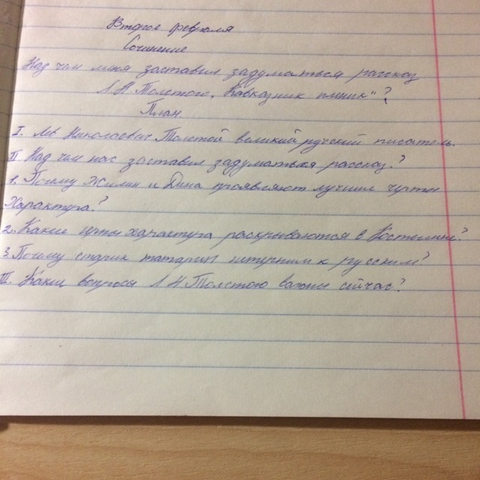 Второе февраля
Сочинение
Над чем меня заставил задуматься рассказ
Л.Н Толстого, Кавказкик пленик"?
План
I. Лев Николаевич Толстой великий русский писатель.
II Над чем нас заставил задуматься рассказ?
1. Почему Жилин и Дина проявляют лучшие черты
Характера?
2. Какие черты характера раскрываются в Костылине?
3. Почему старик татарин нетерпим к русским?
III. Какие вопросы Л Н Толстого важны сейчас?